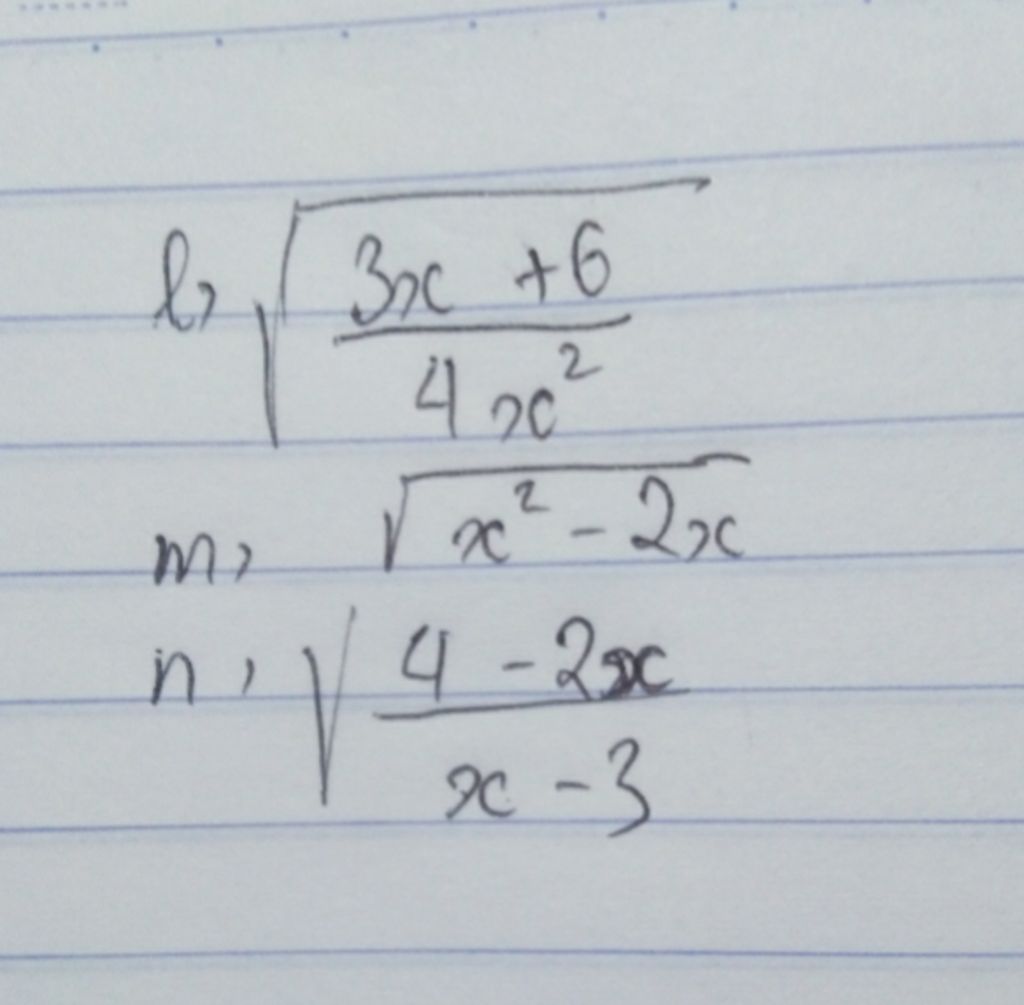 l, √((3x + 6)/(4x²))
m, √(x² - 2x)
n, √((4 - 2x)/(x - 3))